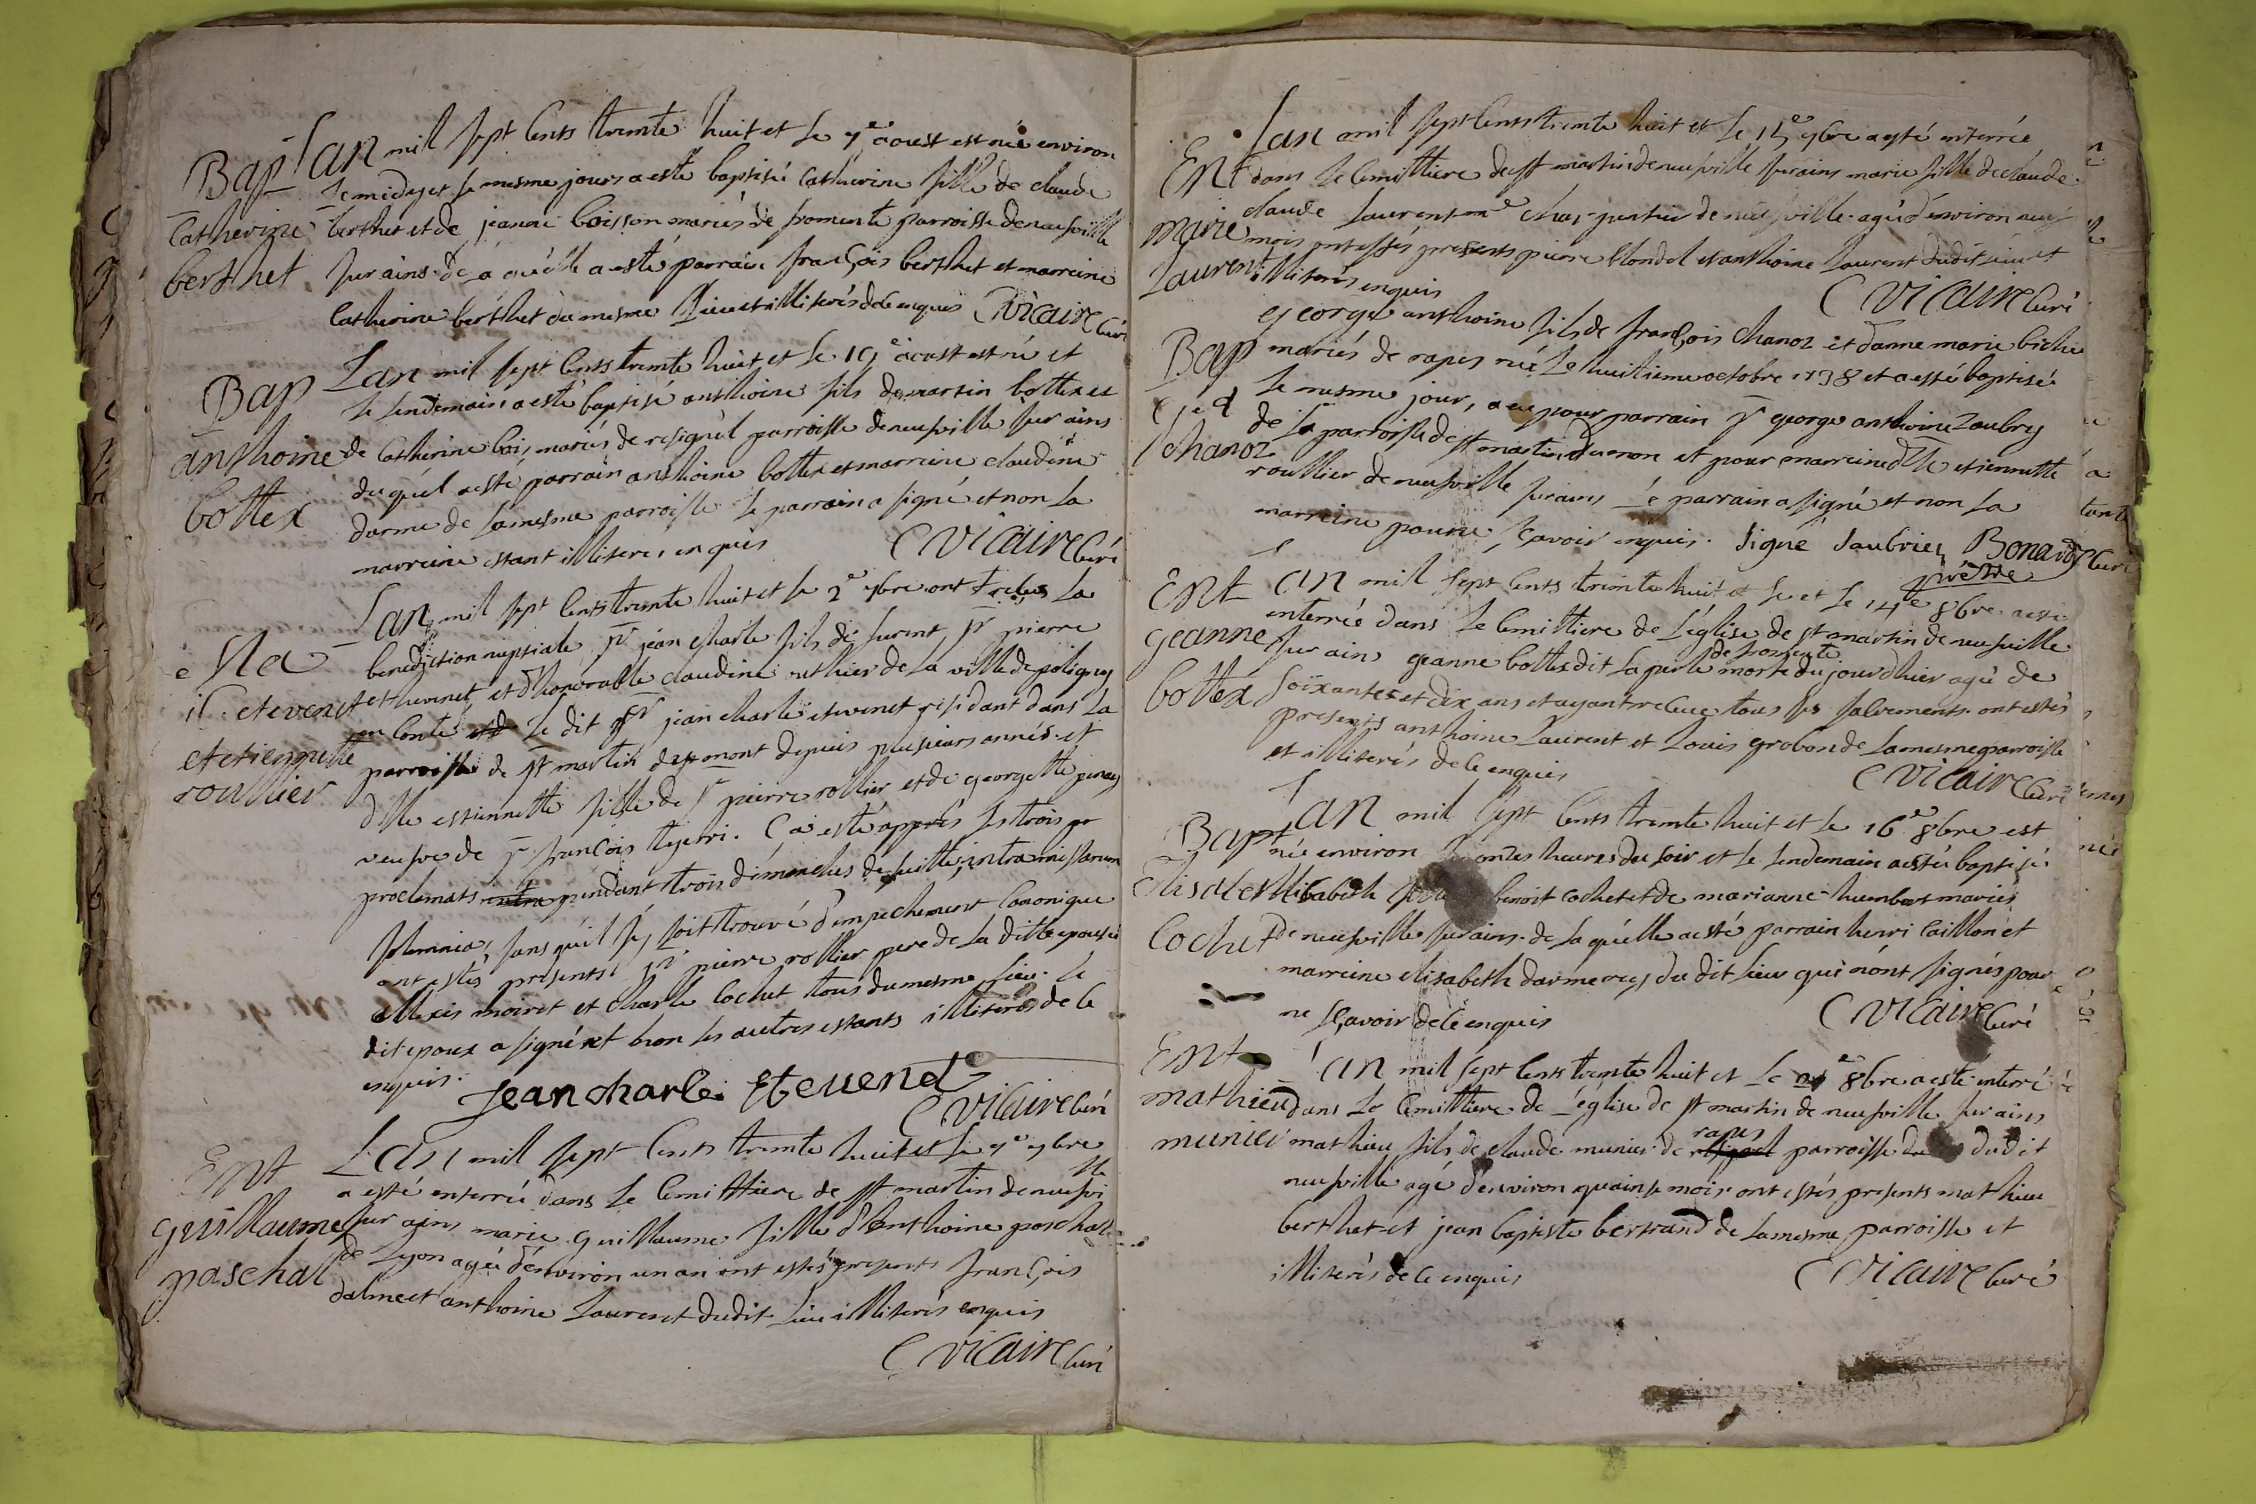 Bap Lan mil sept cents trente huit et le 7e aoust est née environ
le midy et le mesme jours a esté baptisé Catherine fille de claude
Catherine berthet et de jeanne boisson mariés de fromente parroisse de neufville
berthet sur ains de la quélle a esté parrain françois berthet et marreine
Catherine berthet du mesme lieu et illiterés de ce enquis Vicaire Curé
Bap Lan mil sept cents trente huit et le 19e aoust est né et
le lendemain a esté baptisé anthoine fils de martin bottex et
anthoine de Catherine bois mariés de resignel parroisse de neufville sur ains
bottex duquél a esté parrain anthoine bottex et marreine claudine
darme de la mesme parroisse le parrain a signé et non la
marreine estant illiterés enquis Vicaire Curé
Lan mil sept cents trente huit et le 2e 7bre ont recus la
benediction nuptiale sr jean charle fils de furent sr pierre
etthevenet et d'honorable claudine ruthier de la ville de poligny
etevenet en Conté le dit sr jean charle etevenet residant dans la
et etiennette parroisse de st martin du mont depuis plusieurs année et
roullier dlle estiennette fille de sr pierre rollier et de georgette
veufve de sr françois tyerri. Ca esté apprès les trois pr
proclamats pendant trois dimenches de suitte, intra missarum
solemnia, sans qu'il s'y soit trouvé d'empechement Canonique
ont estés présents sr pierre rollier pere de la ditte epousée
allexis moiret et charle cochet tous du mesme lieu le
dit epoux a signé et non les autres estants illiterés de ce
enquis.
jean charle Etevenet
Vicaire Curé
Ent Lan mil sept cents trente huit et le 7e 7bre
a esté enterrée dans le Cemittiere de st martin de neufville
guillaume sur ains marie guillaume fille d'Anthoine paschal
paschal de Lyon agée d'environ un an ont estés presents françois
dalme et anthoine Laurent du dit Lieu illiterés enquis
Vicaire Curé
Lan mil sept cents trente huit et le 15e 7bre a esté enterrée
Ent dans le Cemittiere de st martin de neufville sur ains marie fille de claude
Marie claude Laurent me de neufville agée d'environ neuf
Laurent mois presents pierre blondel et anthoine Laurent du dit lieu et
illiterés enquis Vicaire Curé
george anthoine fils de françois chanoz et d'anne marie biche
Bap mariés de rapes né le huitieme octobre 1738 et a esté baptisé
le mesme jour, a eu pour parrain sr george anthoine Zaubry
chanoz de la parroisse de st martin du mon et pour marreine dlle etiennette
roullier de neufville sur ains le parrain a signé et non la
marreine pour ne sçavoir enquis. Signé Saubrier, Bonard Curé
prestre
Ent Lan mil sept cents trente huit et le 14e 8bre a esté
enterrée dans le Cemittiere de L'église de st martin de neufville
geanne sur ains geanne bottex dit la perle de fromente morte du jour d'hier agé de
bottex soixantes et dix ans et ayant recue tous ses sacrements. ont estés
presents anthoine Laurent et Louis grobon de la mesme parroisse
et illiterés de ce enquis Vicaire Curé
Bapt Lan mil sept cents trente huit et le 16e 8bre est
née environ onzes heures du soir et le lendemain a esté baptisée
Elisabeth benoit cochet et de marianne humbert mariés
Cochet de neufville sur ains. de la quélle a esté parrain henri Caillon et
marreine elisabeth darmerey du dit lieu qui n'ont signés pour
ne sçavoir de ce enquis Vicaire Curé
Ent Lan mil sept cents trente huit et le 8bre a esté enterré
mathieu dans le Cemittiere de L'église de st martin de neufville sur ains
munier mathieu fils de claude munier de rapes parroisse du dit
neufville agé d'environ quainse mois ont estés presents mathieu
berthet et jean baptiste bertrand de la mesme parroisse et
illiterés de ce enquis Vicaire Curé